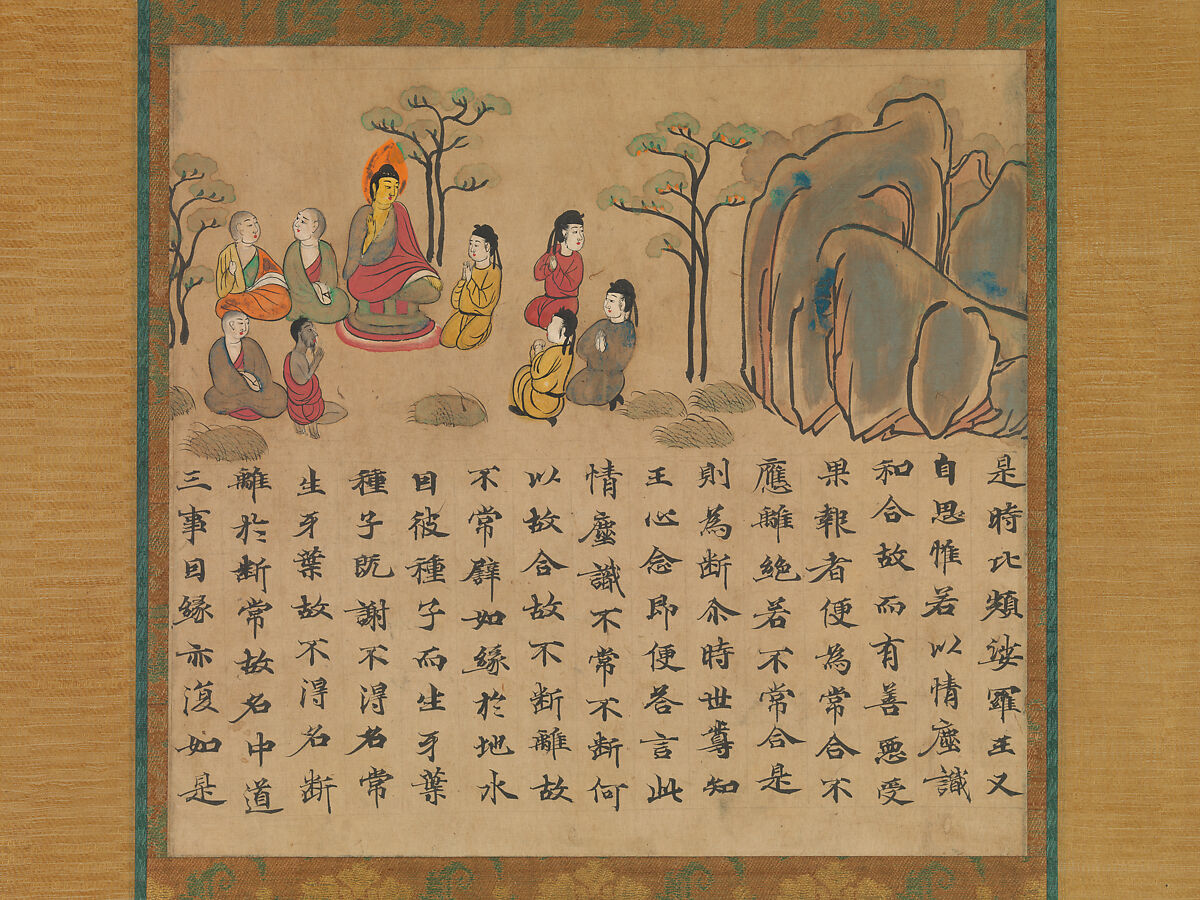 是時比頻娑羅王又
自思惟若以情塵識
和合故而有善惡受
果報者便為常合不
應離絶若不常合是
則為断尒時世尊知
王心念即便荅言此
情塵識不常不断何
以故合故不断離故
不常譬如緣於地水
曰彼種子而生牙葉
種子既謝不得名常
生牙葉故不得名断
離於断常故名中道
三事曰緣亦復如是